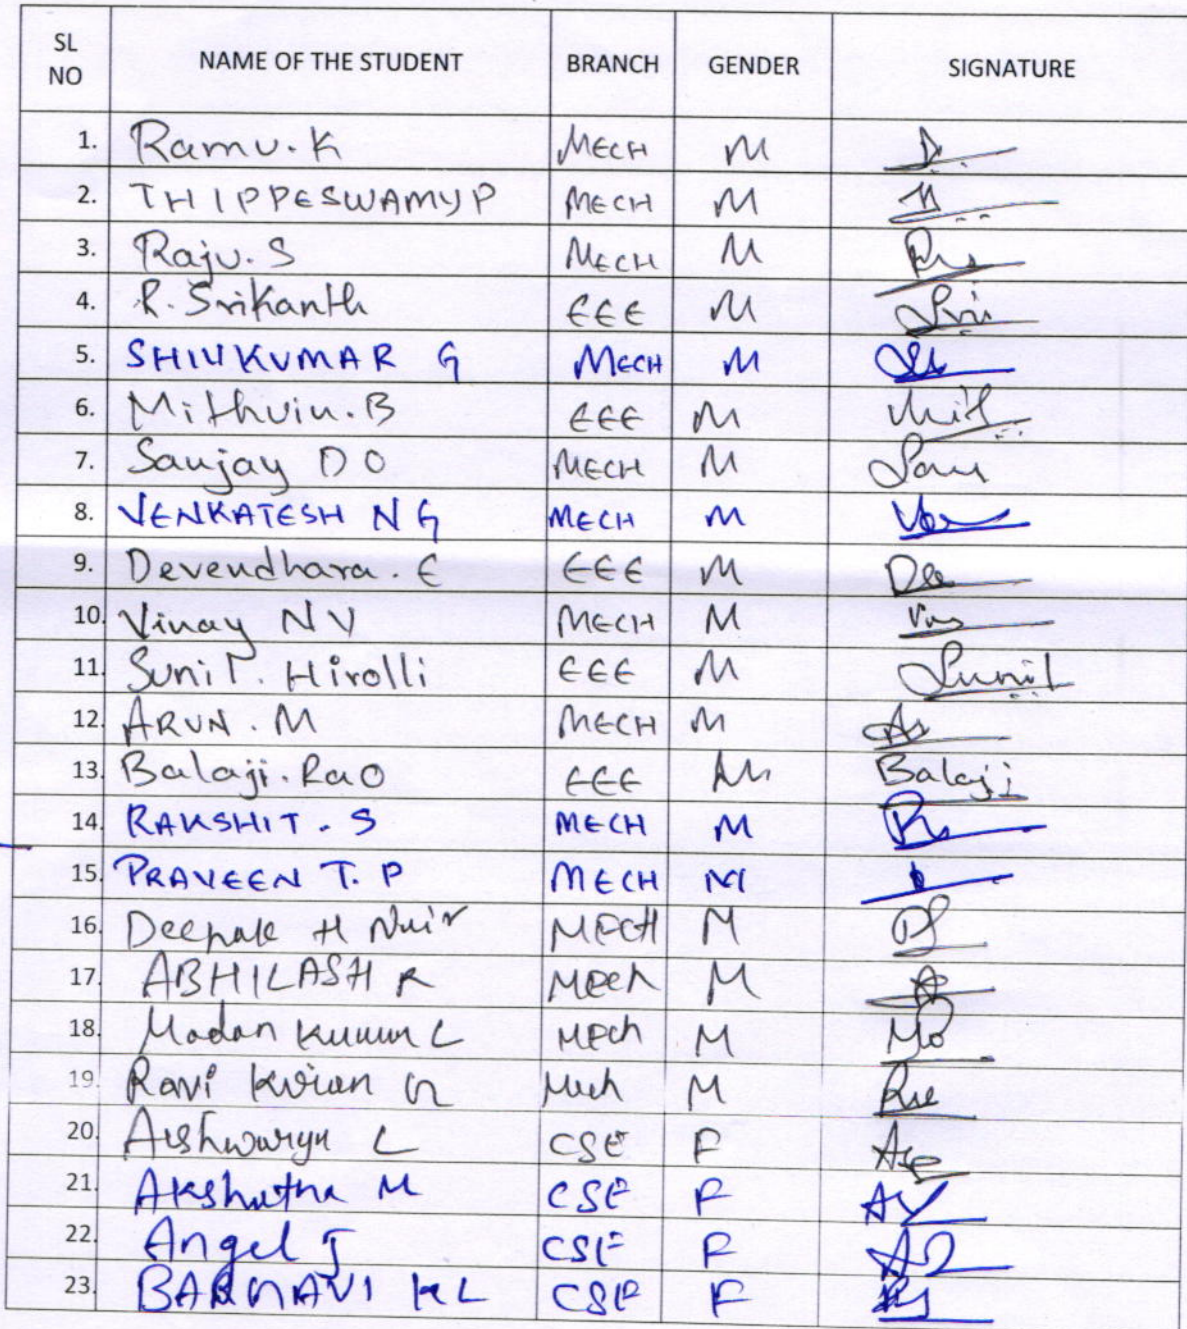 SL NO NAME OF THE STUDENT BRANCH GENDER SIGNATURE
1. Ramu.K MECH M
2. THIPPESWAMY P MECH M
3. Raju.S MECH M
4. R. Srikanth EEE M Sri
5. SHIVKUMAR G MECH M
6. Mithuin.B EEE M Mit
7. Sanjay D O MECH M San
8. VENKATESH N G MECH M Ve
9. Devendhara.E EEE M De
10. Vinay N V MECH M Vin
11. Sunil. Hirolli EEE M Sunil
12. ARUN.M MECH M
13. Balaji.Rao EEE M Balaji
14. RAKSHIT.S MECH M
15. PRAVEEN T.P MECH M
16. Deepak H Nair MECH M
17. ABHILASH R Mech M
18. Madan Kumar L Mech M
19. Ravi Kiran Mech M
20. Aishwarya L CSE F
21. Akshatha M CSE F
22. Angel J CSE F
23. K L CSE F